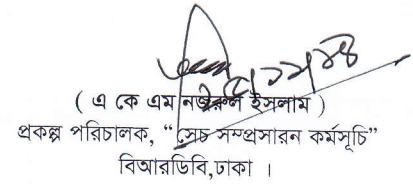 ( এ কে এম নজরুল ইসলাম )
প্রকল্প পরিচালক, “সেচ সম্প্রসারন কর্মসূচি”
বিআরডিবি,ঢাকা ।